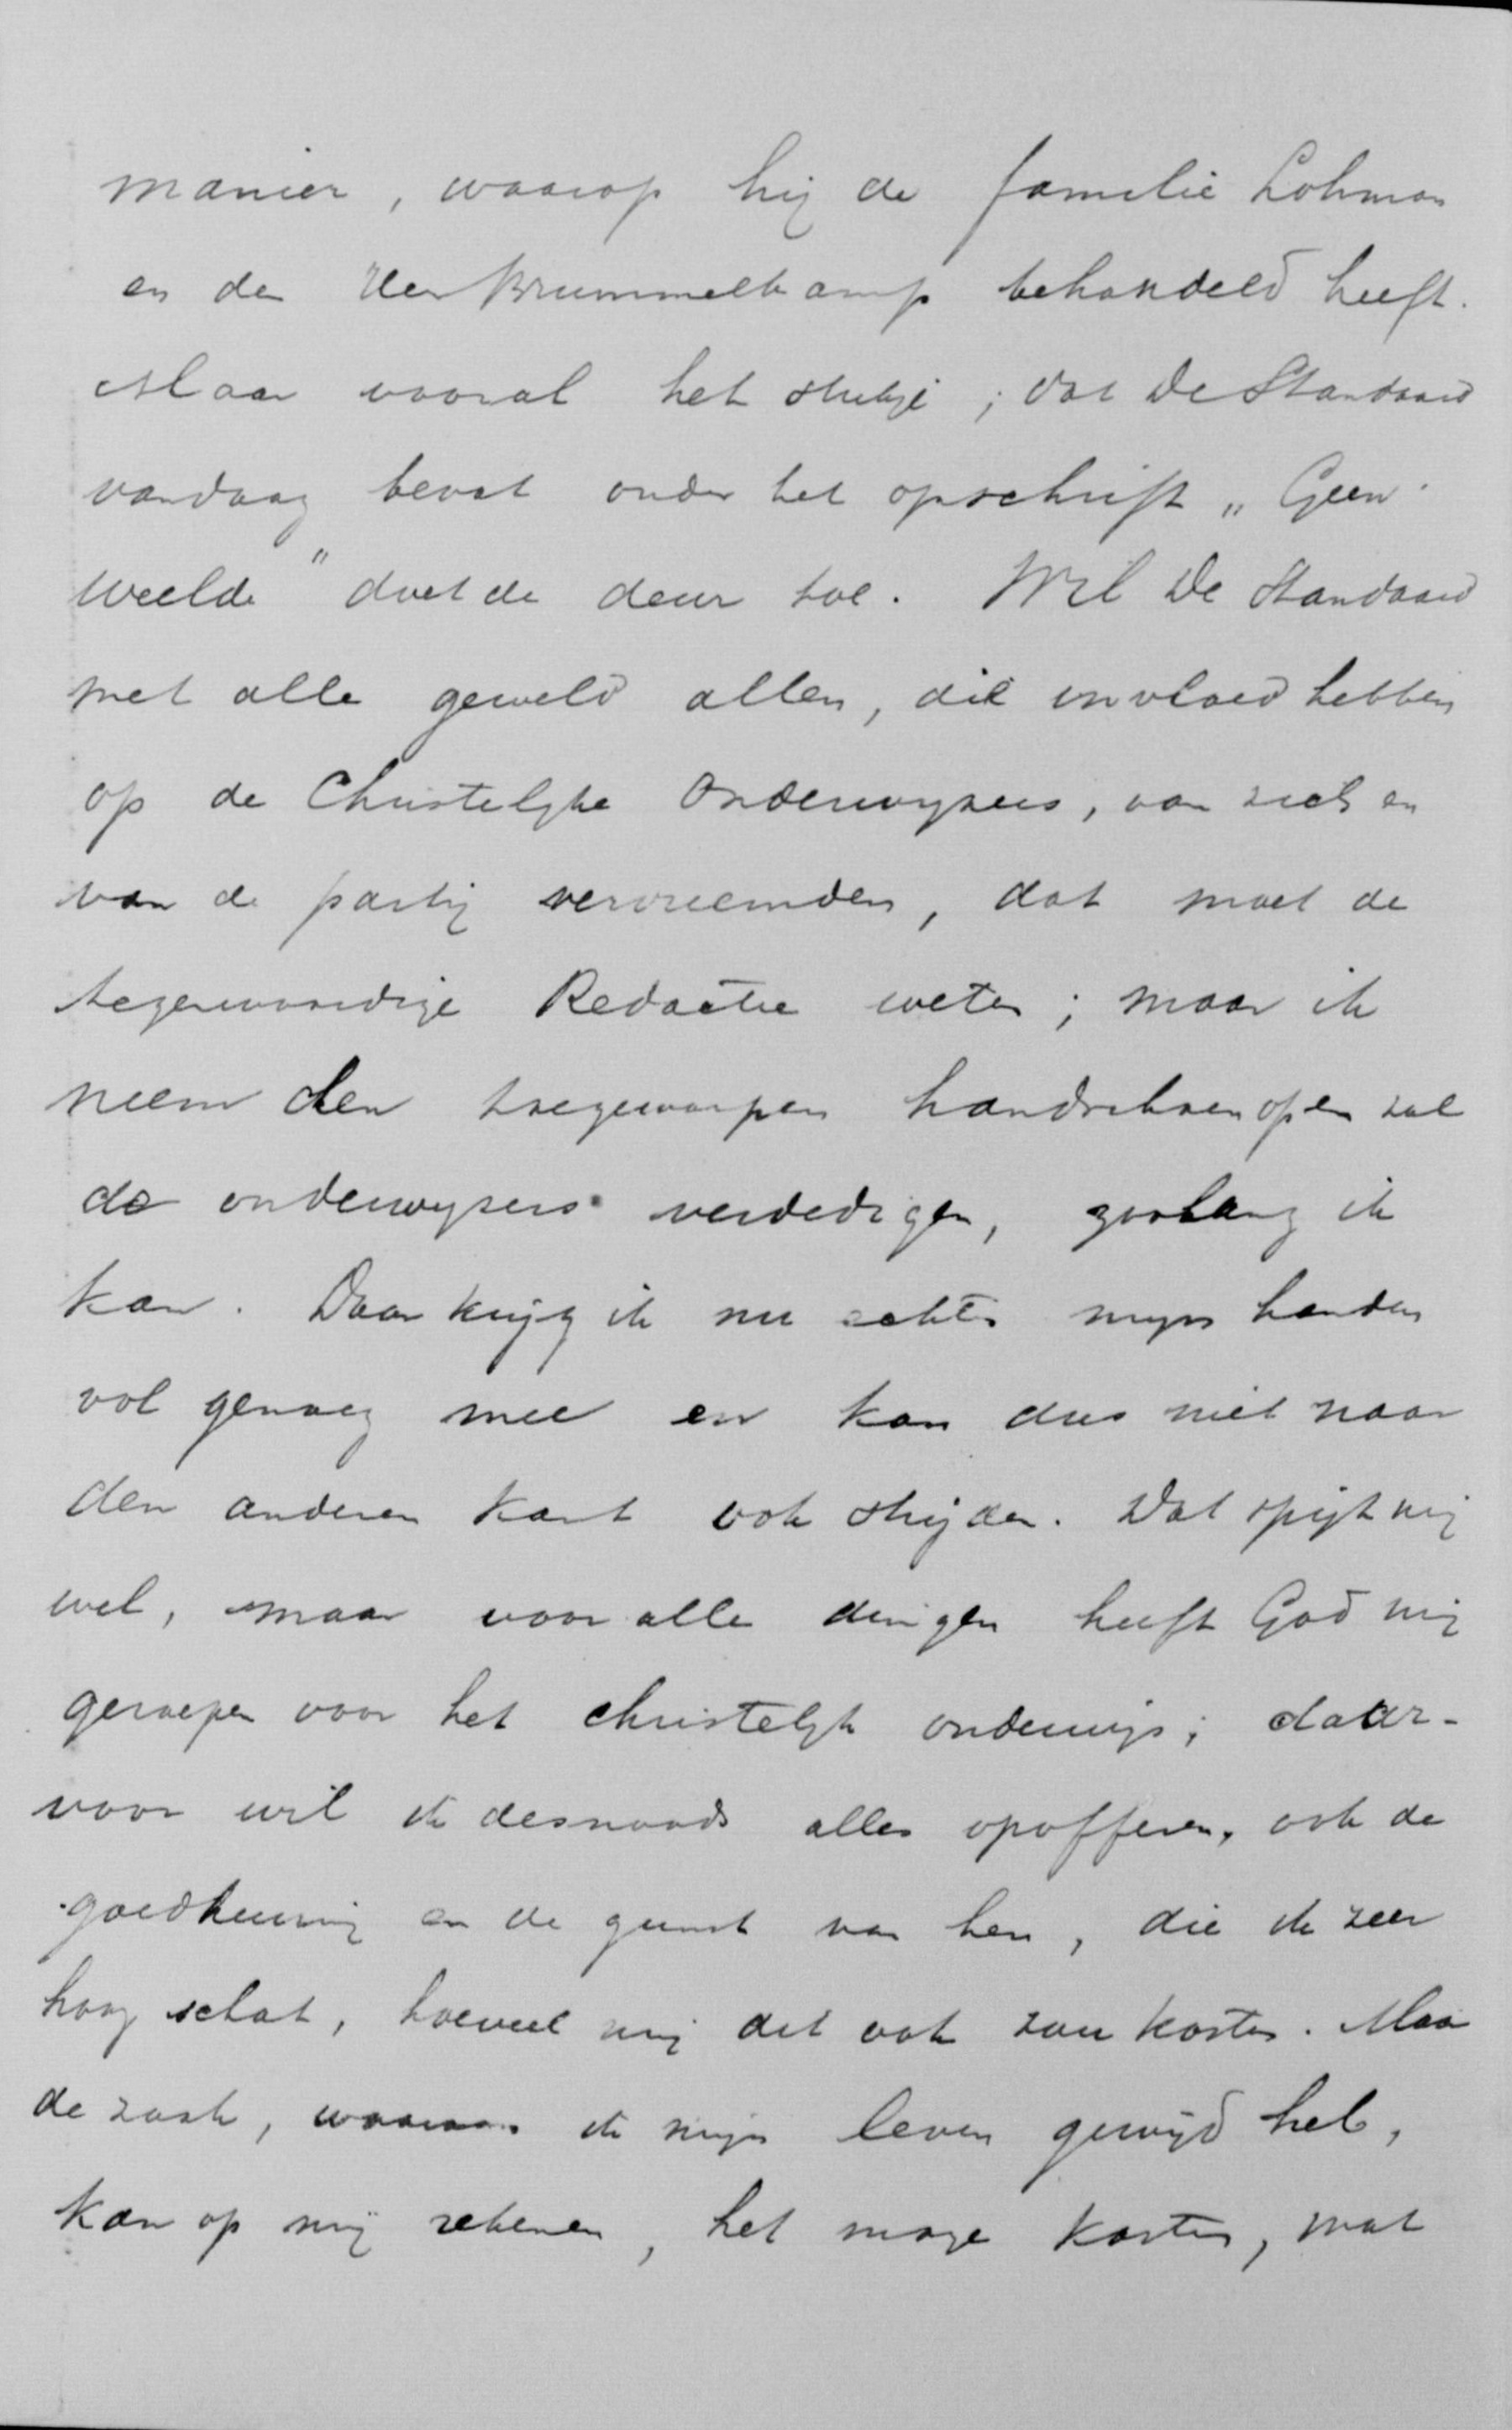 manier, waarop hij de familie Lohman
en den Heer Brummelkamp behandeld heeft.
Maar vooral het stukje, dat De Standaard
vandaag bevat onder het opschrift „Geen
weelde" doet de deur toe. Wil De Standaard
met alle geweld allen, die invloed hebben
op de Christelyke Onderwyzers, van zich en
van de partij vervreemden, dat moet de
tegenwoordige Redactie weten; maar ik
neem den toegeworpen handschoen op en zal
de onderwyzers verdedigen, zoolang ik
kan. Daar krijg ik nu echter myn handen
vol genoeg mee en kan dus niet naar
den anderen kant ook strijden. Dat spijt mij
wel, maar voor alle dingen heeft God mij
geroepen voor het christelyk onderwijs; daar-
voor wil ik desnoods alles opofferen, ook de
goedkeuring en de gunst van hen, die ik zeer
hoog schat, hoeveel mij dit ook zou kosten. Maar
de zaak, waaraan ik mijn leven gewijd heb,
kan op mij rekenen, het moge kosten, wat